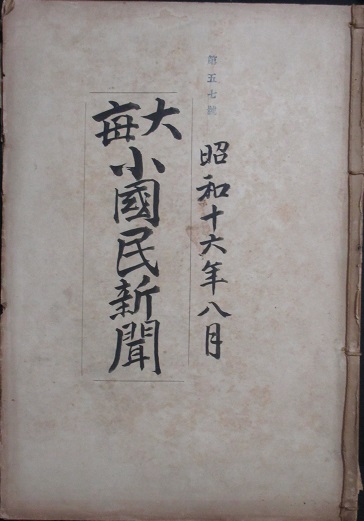 第五七號
昭和十六年八月
大毎
小國民新聞